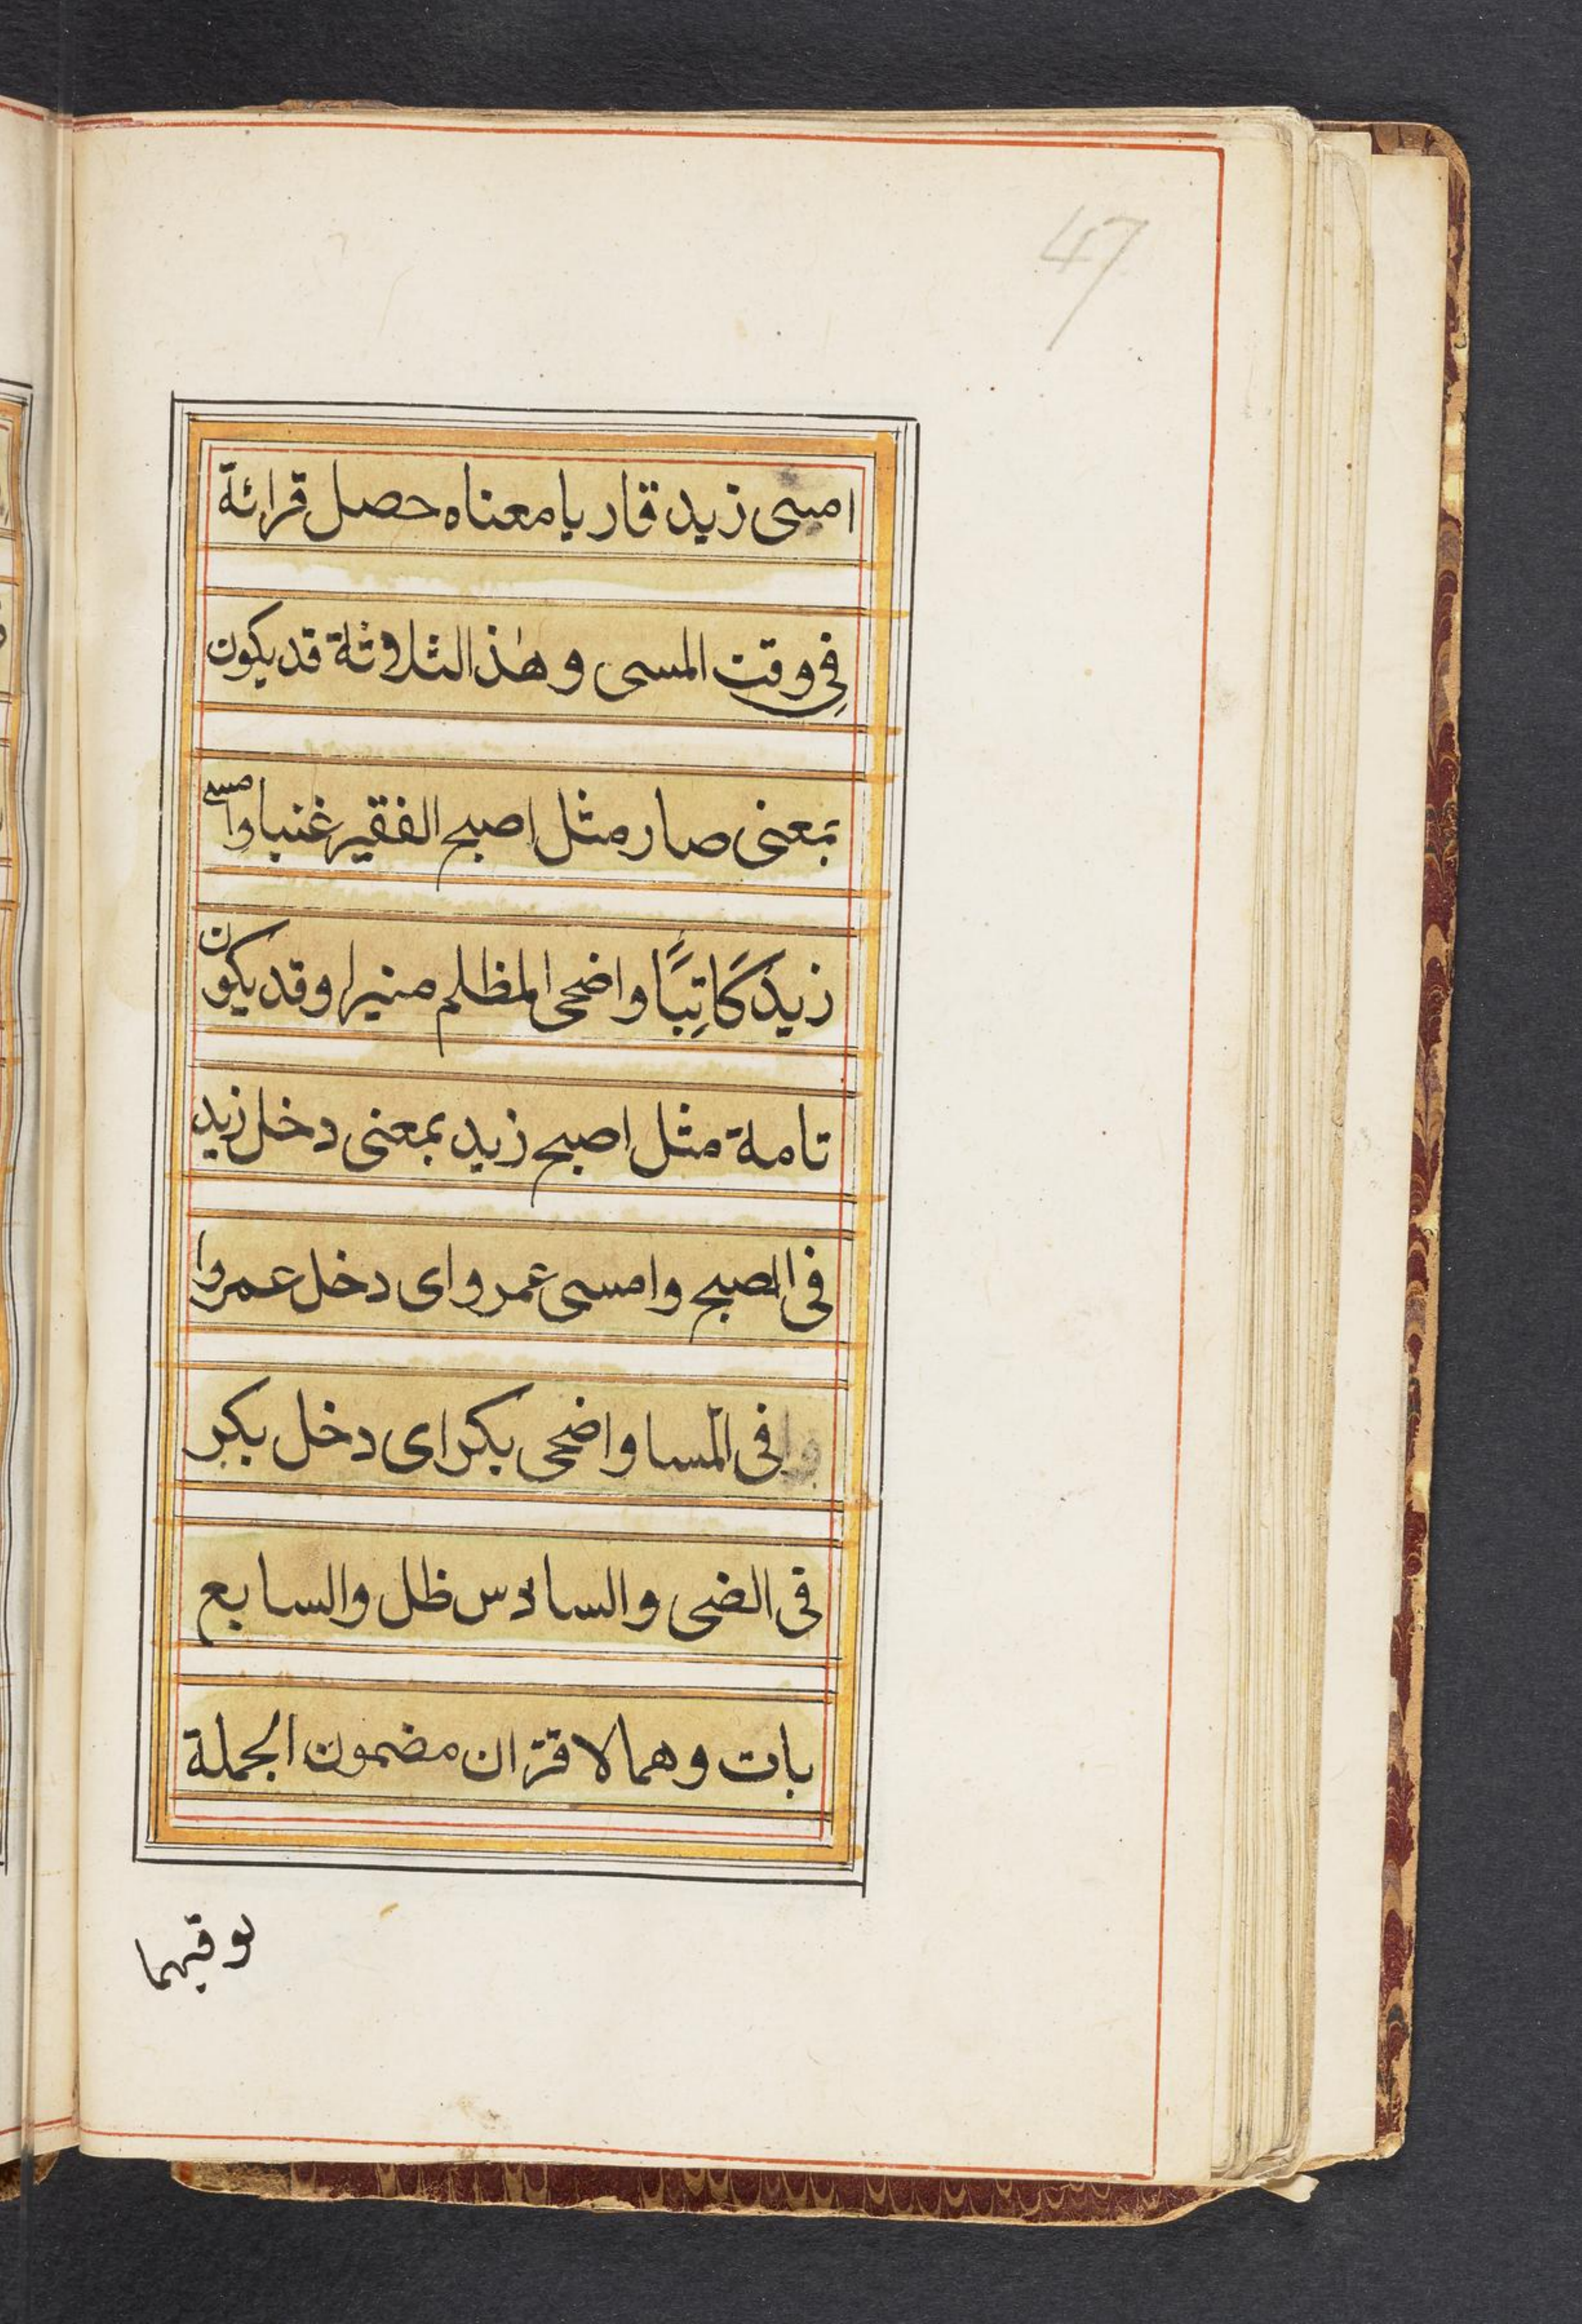 47
امسی زید قاریا معناه حصل قرائة
فی وقت المسی و هذا الثلاثة قد یکون
بمعنی صار مثل اصبح الفقیر غنیا وامسی
زید کَاتِبًا واضحی المظلم منیرا وقد یکون
تامة مثل اصبح زید بمعنی دخل زید
فی الصبح وامسی عمرو ای دخل عمروا
فی المسا واضحی بکر ای دخل بکر
فی الضحی والسادس ظل والسابع
بات وهما لاقتران مضمون الجملة
بوقتهما